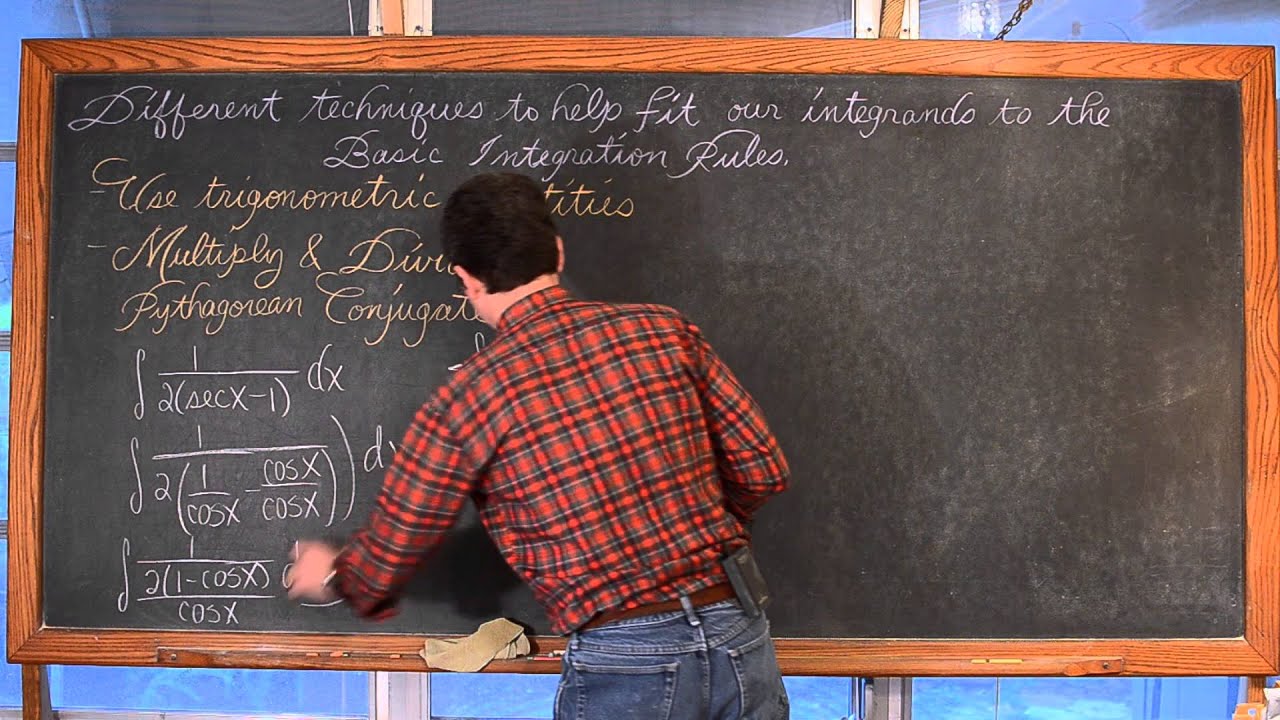 Different techniques to help fit our integrands to the
Basic Integration Rules.
- Use trigonometric
- Multiply &
Pythagorean
∫ 1/(2(secx-1)) dx
∫ 1/(2(1/cosx - cosx/cosx)) dx
∫ 1/(2(1-cosx)/cosx)